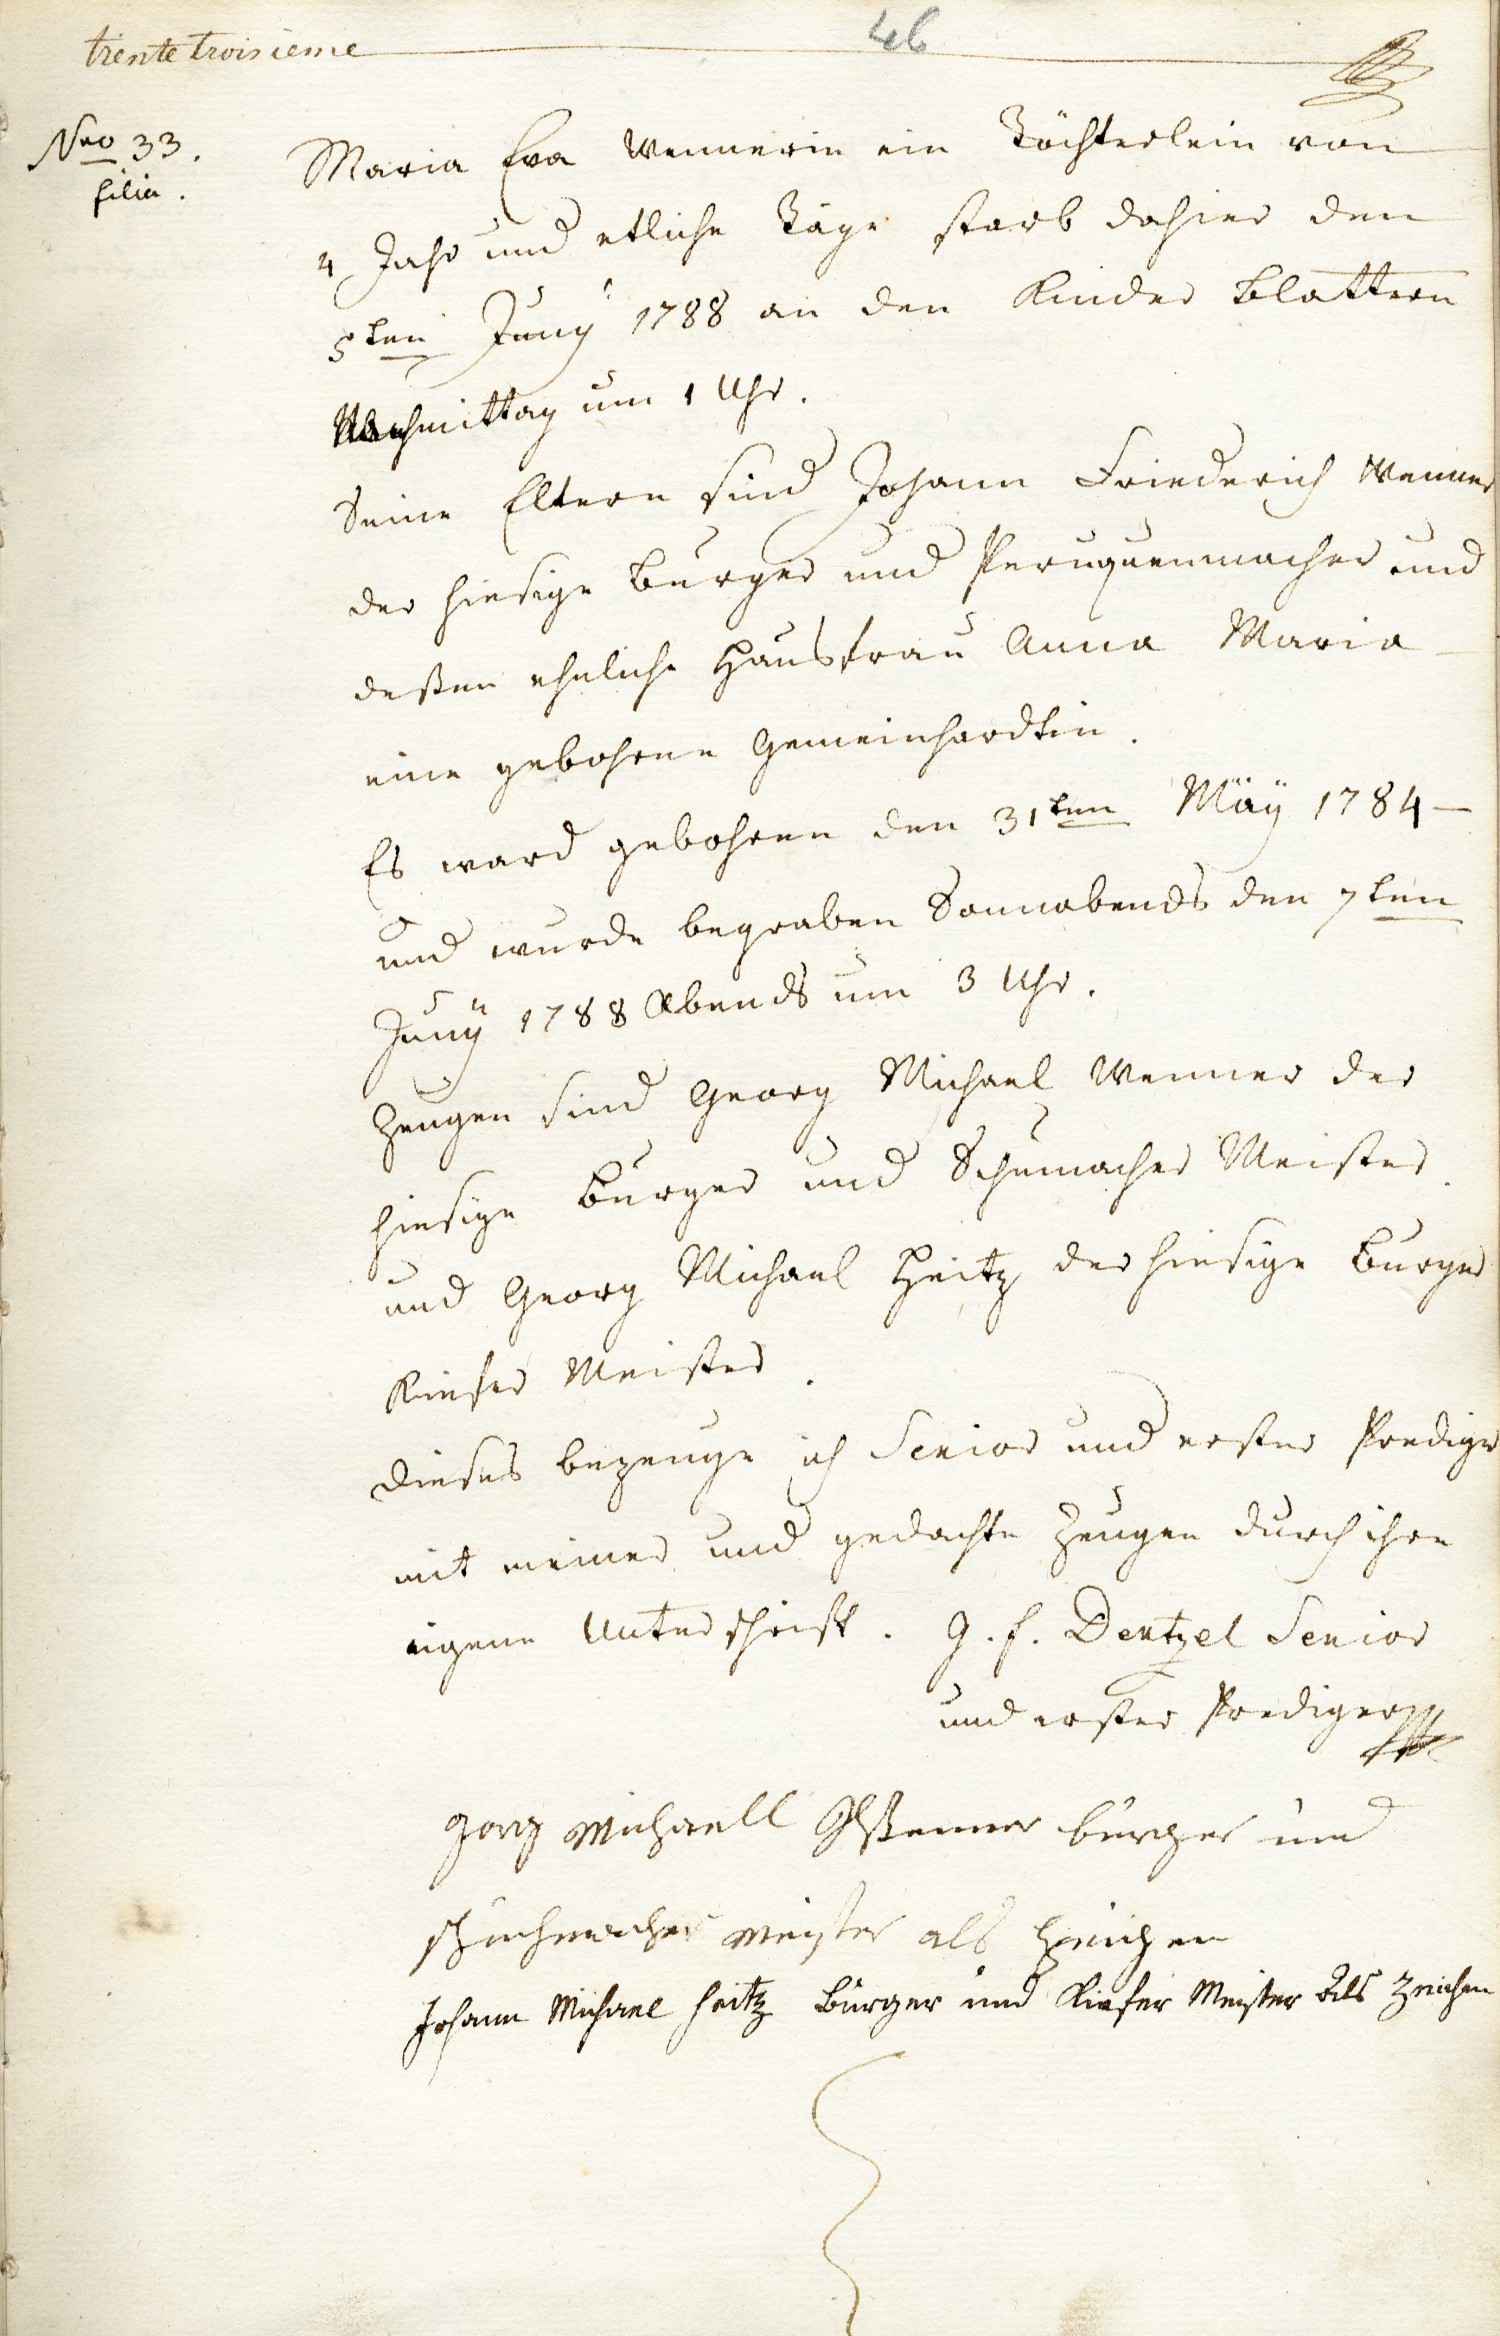 trente troisieme
46
Nro 33.
filia.
Maria Eva Wennerin ein Töchterlein von
4 Jahr und etliche Täge starb dahier den
5ten Juny 1788 an den Kinder Blattern
Nachmittag um 1 Uhr.
Seine Eltern sind Johann Friederich Wenner
der hiesige Burger und Peruquenmacher und
deßen eheliche Hausfrau Anna Maria
eine gebohrne Gemeinhardtin.
Es ward gebohren den 31ten Mäÿ 1784
und wurde begraben Sonnabends den 7ten
Junÿ 1788 Abends um 3 Uhr.
Zeugen sind Georg Michael Wenner der
hiesige Burger und Schumacher Meister
und Georg Michael Heitz der hiesige Burger
Kiefer Meister.
Dieses bezeuge ich Senior und erster Prediger
mit meiner und gedachte Zeugen durch ihre
eigene Unterschrift. G. F. Dentzel Senior
und erster Prediger
Gorg Michaell burger und
schuhmacher Meister als Zeichen
Johann Michael Heitz Burger und Kiefer Meister Als Zeichen